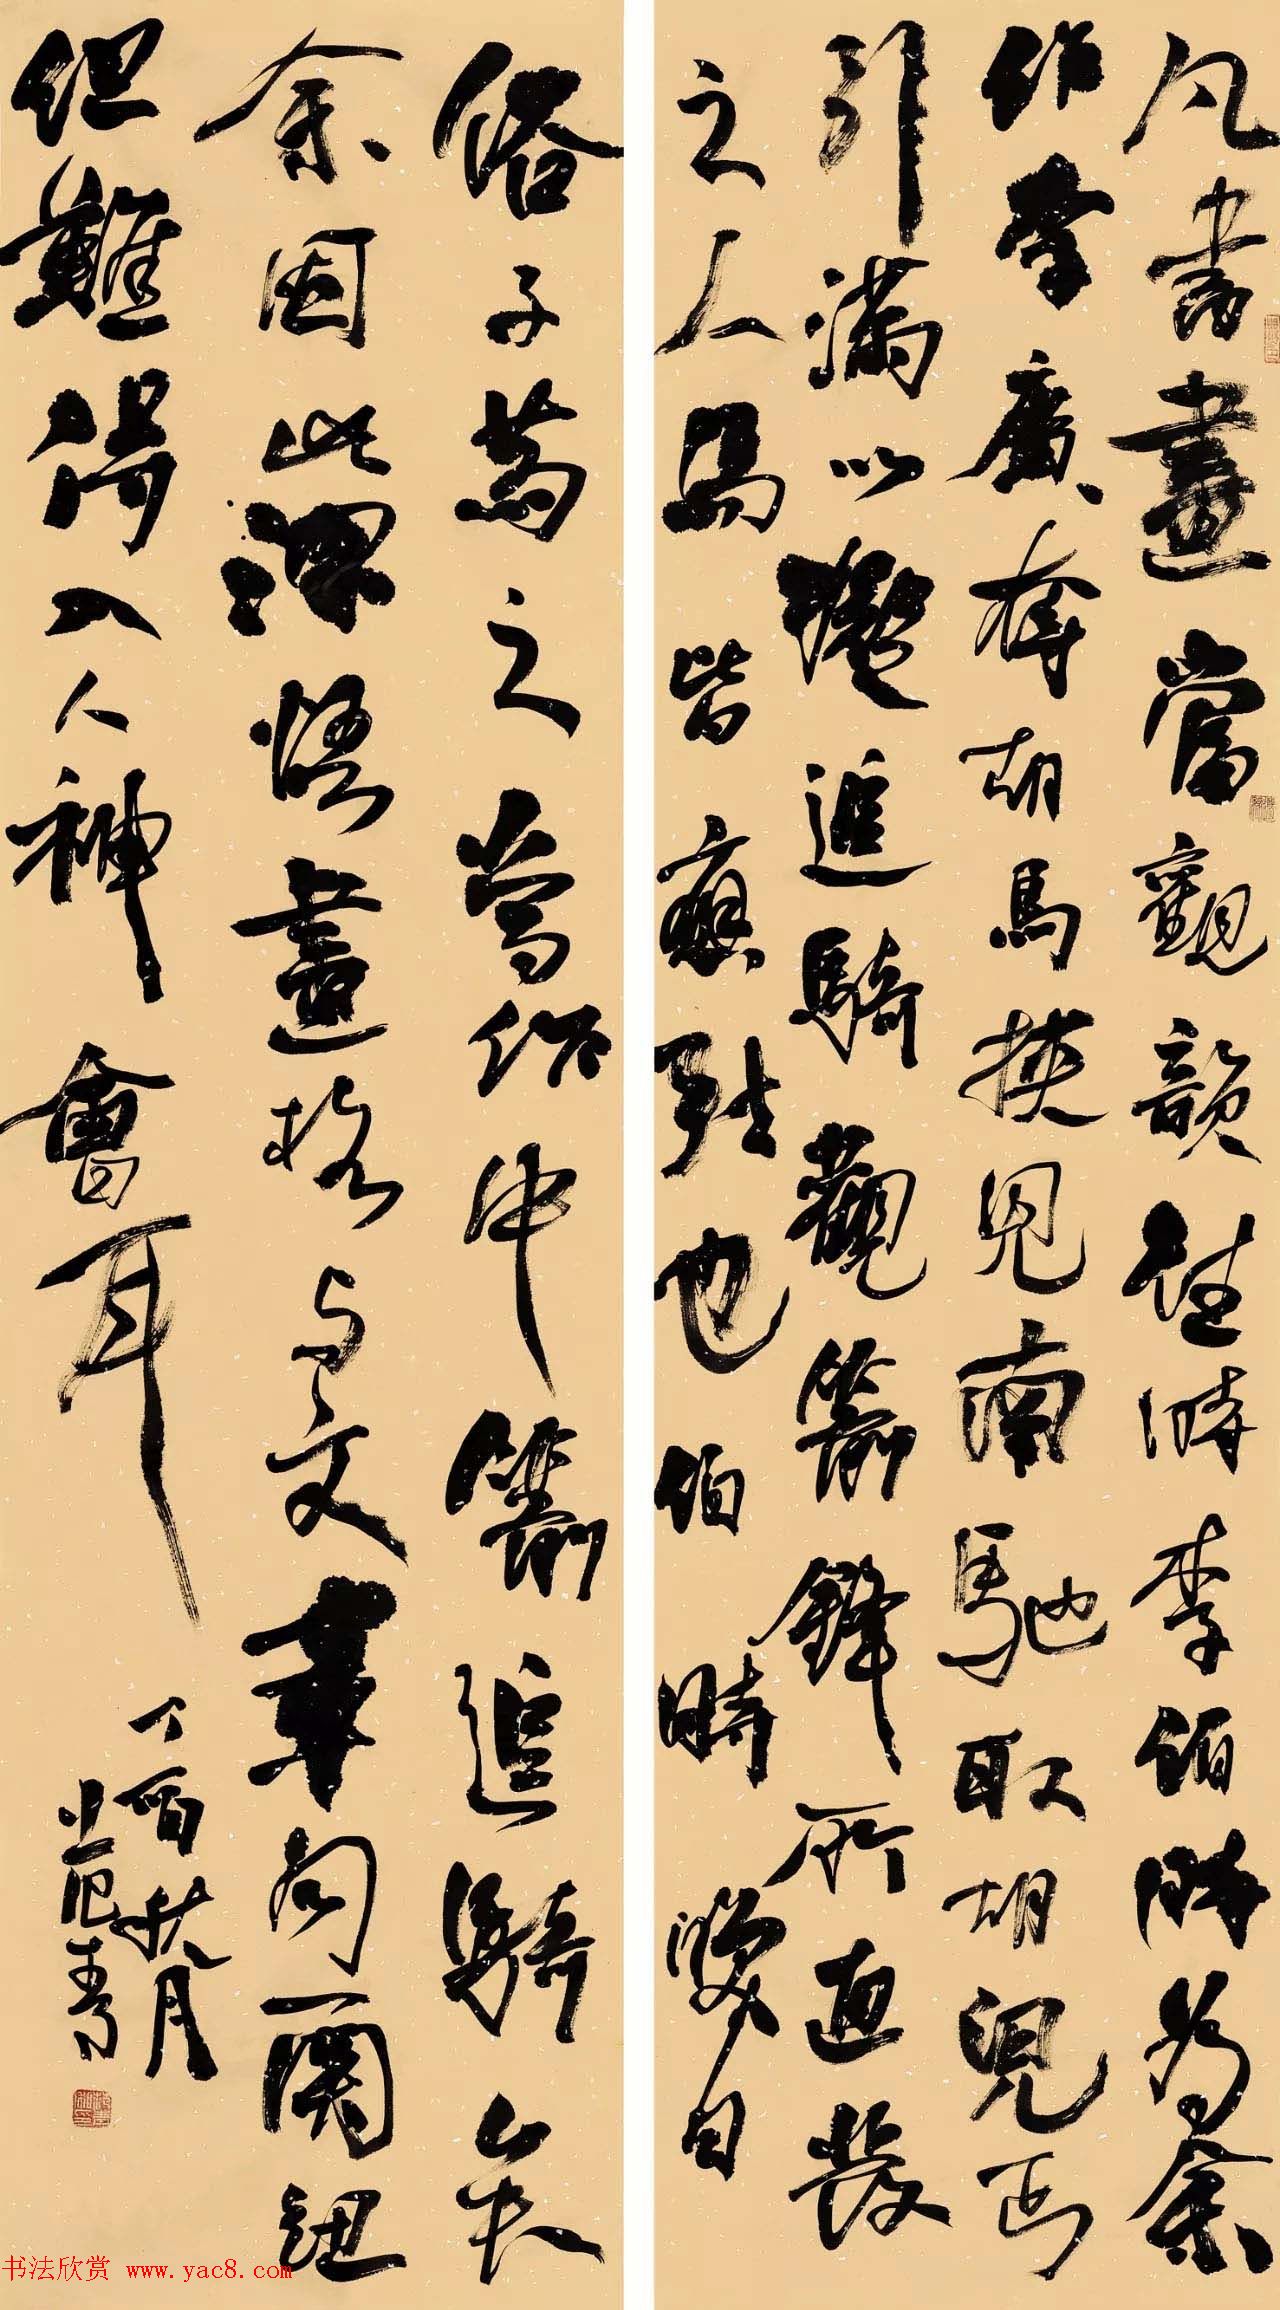 凡書畫當觀韻往時李伯時為余
作李廣奪胡馬挾兒南馳取胡兒弓
引滿以擬追騎觀箭鋒所直發
之人馬皆應弦也伯時笑曰
俗子為之當作中箭追騎矣
余因此深悟畫格與文章同一關紐
但難得入人神會耳
丁酉秋月
范青
书法欣赏 www.yac8.com